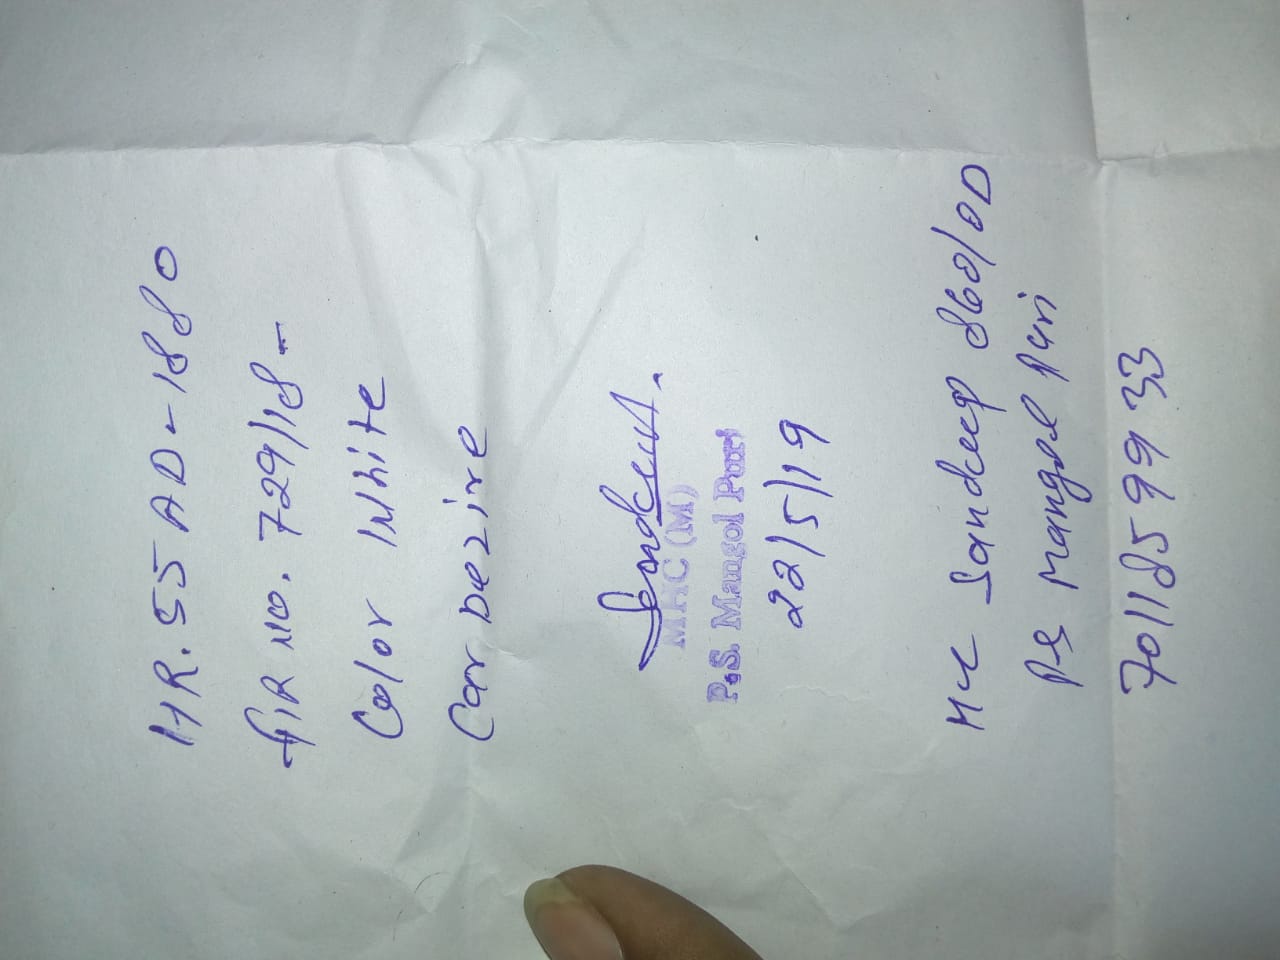 HR. 55 AD-1880
FIR no. 729/18-
Color White
Car Dezire
Sandeep
MHC (M)
P.S. Mangol Puri
22/5/19
HC Sandeep 860/OD
PS Mangol Puri
7011859933